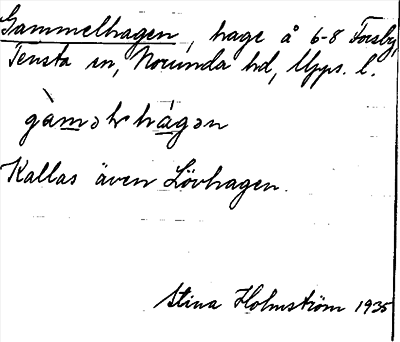 Gammelhagen, hage å 6-8 Forsby,
Tensta sn, Norunda hd, Upps. l.
gàməlhágən
Kallas även Lövhagen.
Stina Holmström 1935